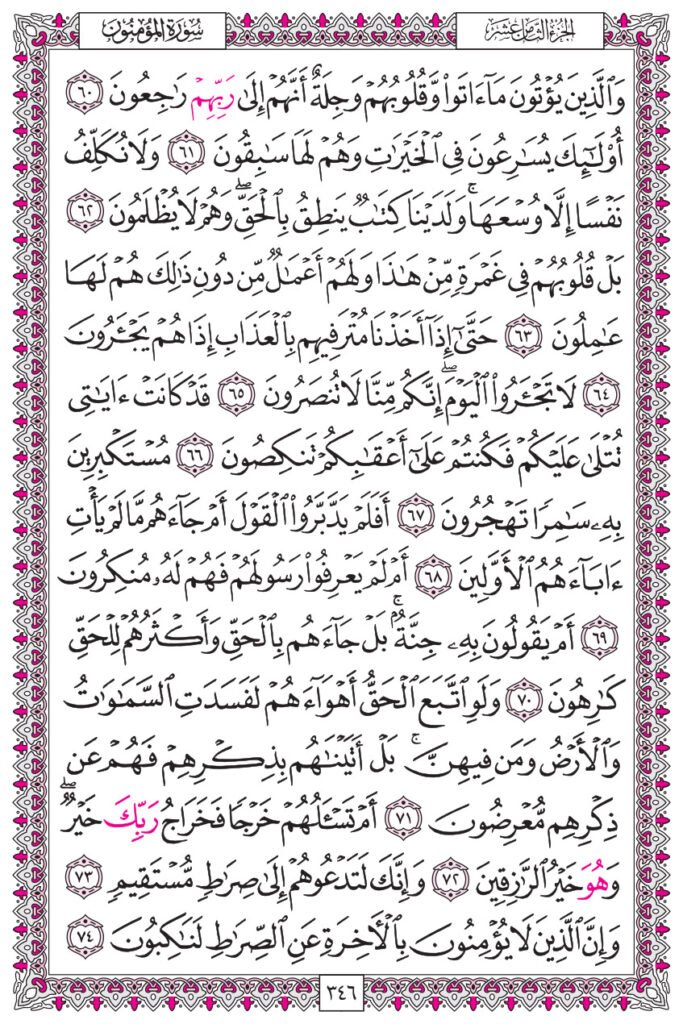 سورة المؤمنون
الجزء الثامن عشر
وَالَّذِينَ يُؤْتُونَ مَآ ءَاتَوا۟ وَّقُلُوبُهُمْ وَجِلَةٌ أَنَّهُمْ إِلَىٰ رَبِّهِمْ رَٰجِعُونَ ٦٠
أُو۟لَٰٓئِكَ يُسَٰرِعُونَ فِى ٱلْخَيْرَٰتِ وَهُمْ لَهَا سَٰبِقُونَ ٦١ وَلَا نُكَلِّفُ
نَفْسًا إِلَّا وُسْعَهَا ۚ وَلَدَيْنَا كِتَٰبٌ يَنطِقُ بِٱلْحَقِّ ۖ وَهُمْ لَا يُظْلَمُونَ ٦٢
بَلْ قُلُوبُهُمْ فِى غَمْرَةٍ مِّنْ هَٰذَا وَلَهُمْ أَعْمَٰلٌ مِّن دُونِ ذَٰلِكَ هُمْ لَهَا
عَٰمِلُونَ ٦٣ حَتَّىٰٓ إِذَآ أَخَذْنَا مُتْرَفِيهِم بِٱلْعَذَابِ إِذَا هُمْ يَجْـَٔرُونَ
٦٤ لَا تَجْـَٔرُوا۟ ٱلْيَوْمَ ۖ إِنَّكُم مِّنَّا لَا تُنصَرُونَ ٦٥ قَدْ كَانَتْ ءَايَٰتِى
تُتْلَىٰ عَلَيْكُمْ فَكُنتُمْ عَلَىٰٓ أَعْقَٰبِكُمْ تَنكِصُونَ ٦٦ مُسْتَكْبِرِينَ
بِهِۦ سَٰمِرًا تَهْجُرُونَ ٦٧ أَفَلَمْ يَدَّبَّرُوا۟ ٱلْقَوْلَ أَمْ جَآءَهُم مَّا لَمْ يَأْتِ
ءَابَآءَهُمُ ٱلْأَوَّلِينَ ٦٨ أَمْ لَمْ يَعْرِفُوا۟ رَسُولَهُمْ فَهُمْ لَهُۥ مُنكِرُونَ
٦٩ أَمْ يَقُولُونَ بِهِۦ جِنَّةٌۢ ۚ بَلْ جَآءَهُم بِٱلْحَقِّ وَأَكْثَرُهُمْ لِلْحَقِّ
كَٰرِهُونَ ٧٠ وَلَوِ ٱتَّبَعَ ٱلْحَقُّ أَهْوَآءَهُمْ لَفَسَدَتِ ٱلسَّمَٰوَٰتُ
وَٱلْأَرْضُ وَمَن فِيهِنَّ ۚ بَلْ أَتَيْنَٰهُم بِذِكْرِهِمْ فَهُمْ عَن
ذِكْرِهِم مُّعْرِضُونَ ٧١ أَمْ تَسْـَٔلُهُمْ خَرْجًا فَخَرَاجُ رَبِّكَ خَيْرٌ ۖ
وَهُوَ خَيْرُ ٱلرَّٰزِقِينَ ٧٢ وَإِنَّكَ لَتَدْعُوهُمْ إِلَىٰ صِرَٰطٍ مُّسْتَقِيمٍ ٧٣
وَإِنَّ ٱلَّذِينَ لَا يُؤْمِنُونَ بِٱلْأَخِرَةِ عَنِ ٱلصِّرَٰطِ لَنَٰكِبُونَ ٧٤
٣٤٦